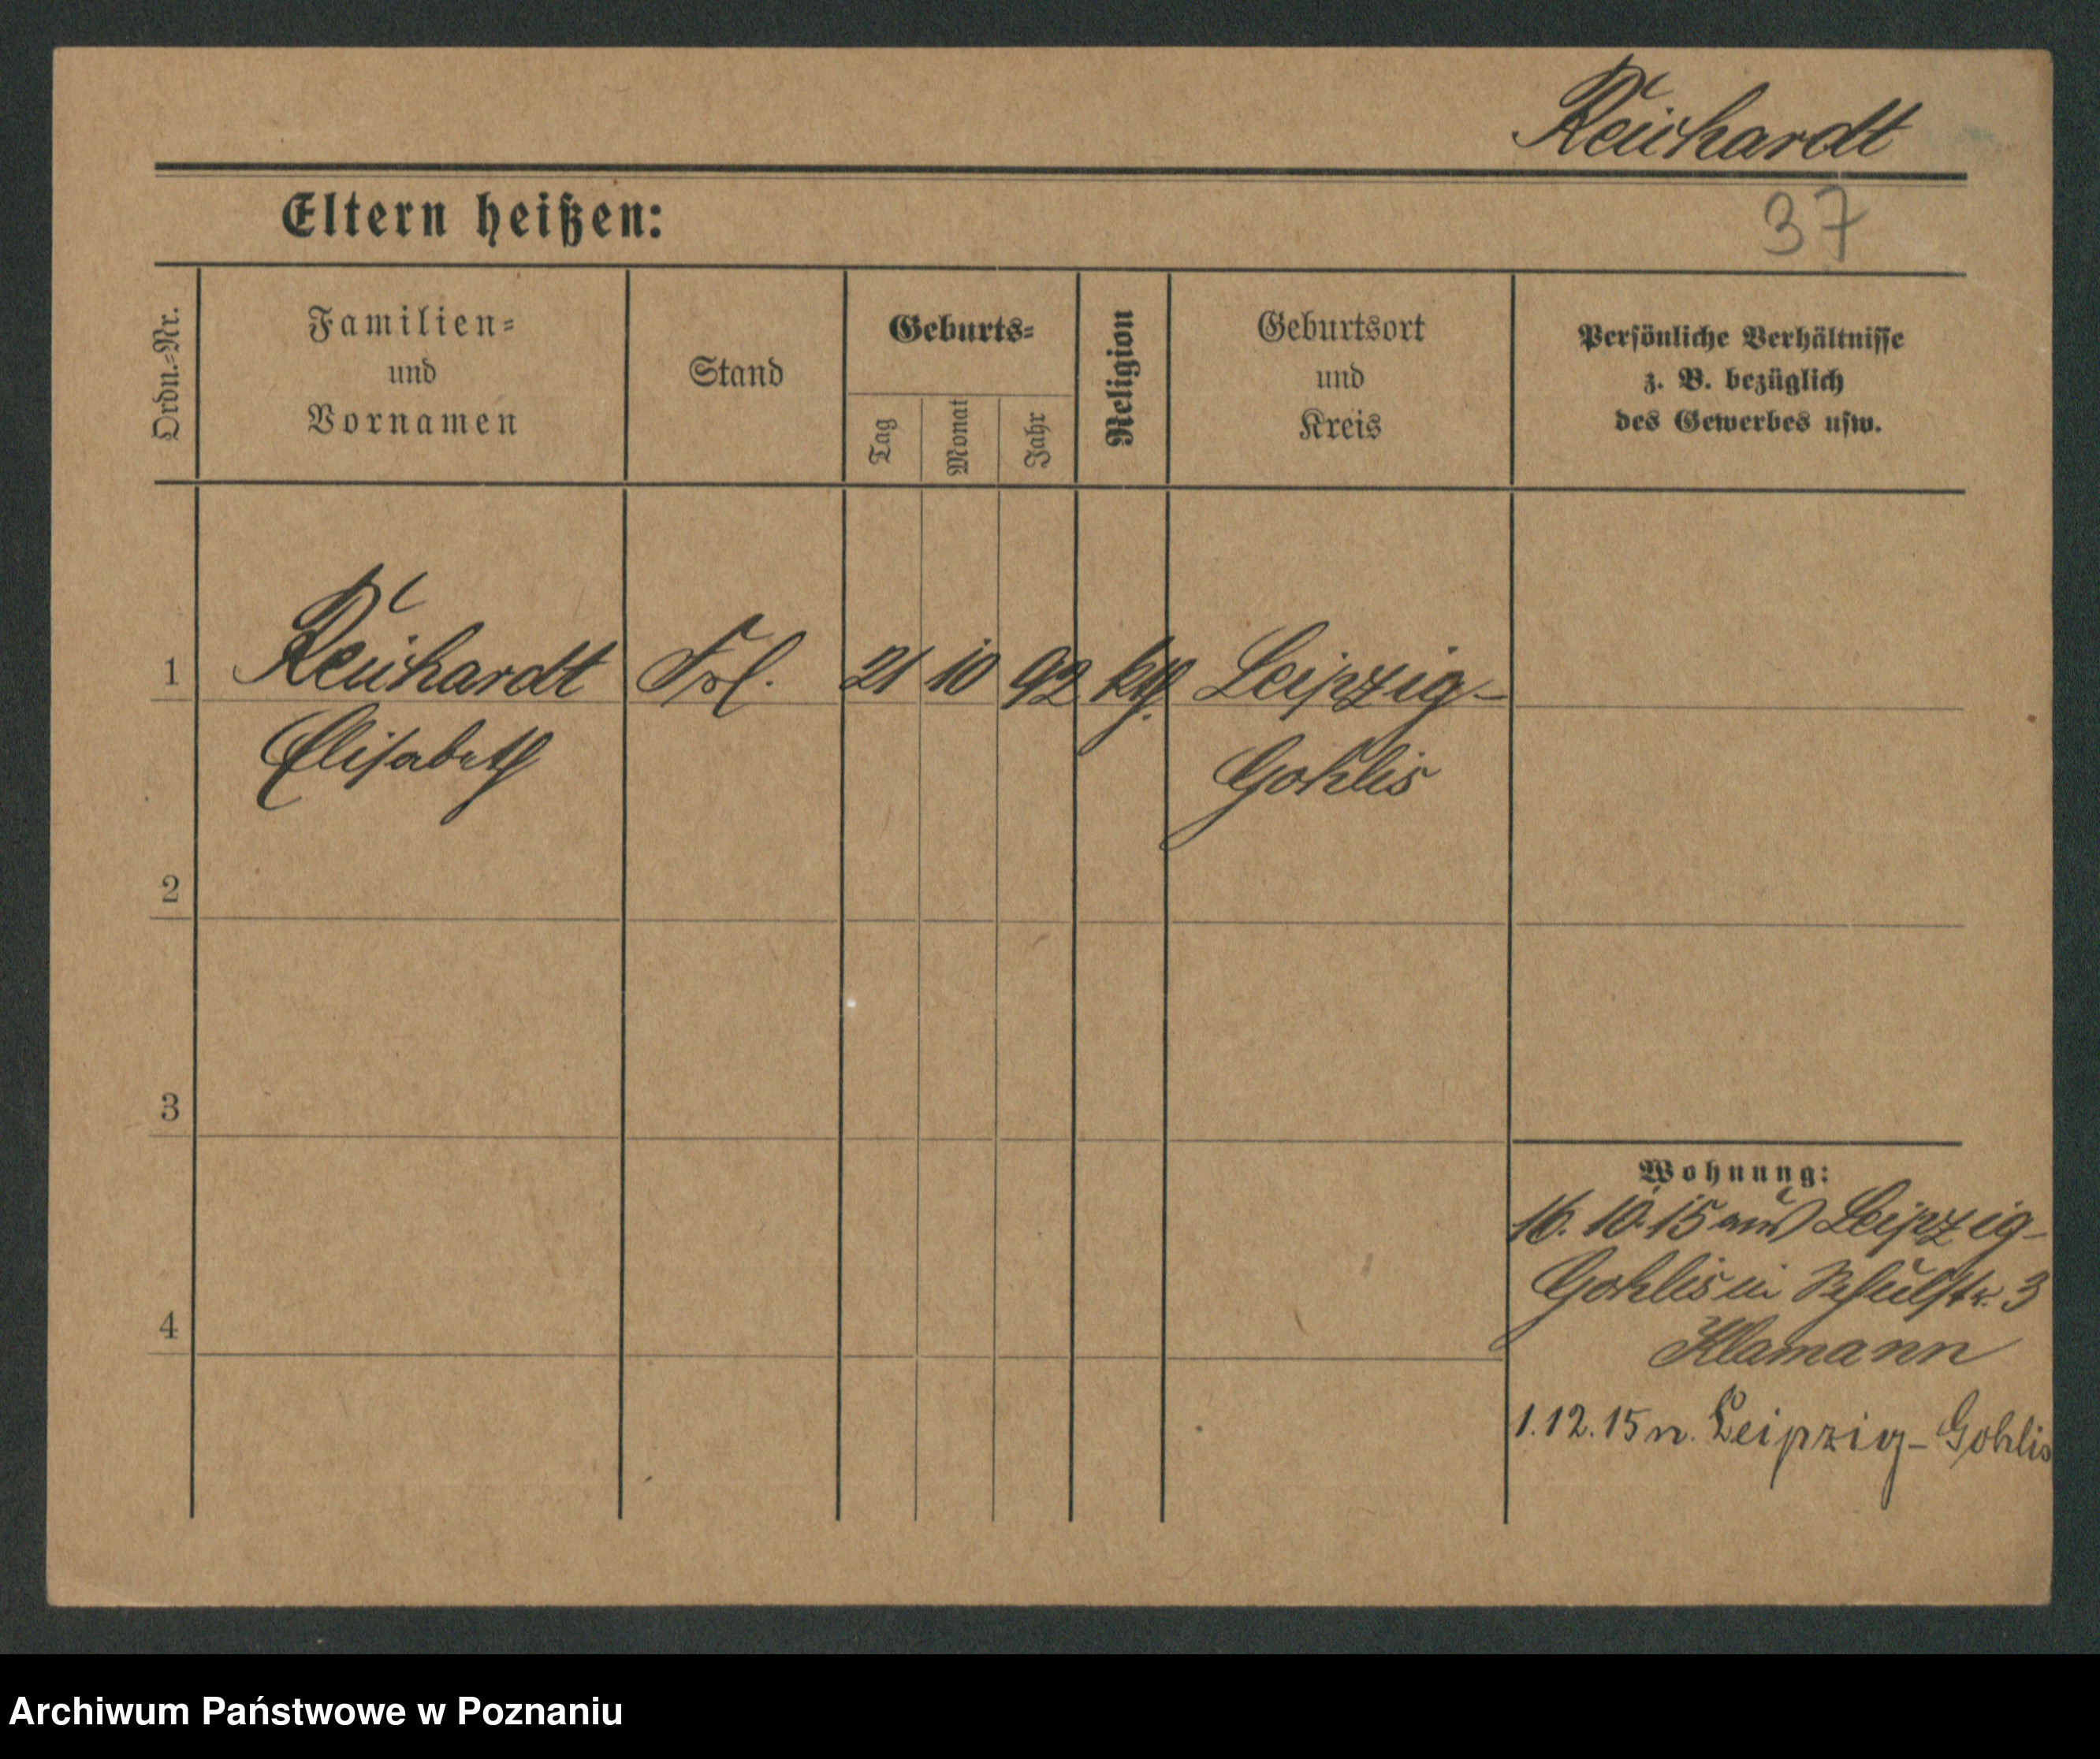 Reinhardt
37
Eltern heißen:
Ordn.=Nr.
Familien=
und
Vornamen
Stand
Geburts=
Tag
Monat
Jahr
Religion
Geburtsort
und
Kreis
Persönliche Verhältnisse
z. B. bezüglich
des Gewerbes usw.
1
Reinhardt
Elisabeth
Frl.
21
10
92
Leipzig-
Gohlis
2
3
4
Wohnung:
16. 10. 15 aus Leipzig-
Gohlis in Schulstr. 3
Klamann
1. 12. 15 n. Leipzig-Gohlis
Archiwum Państwowe w Poznaniu